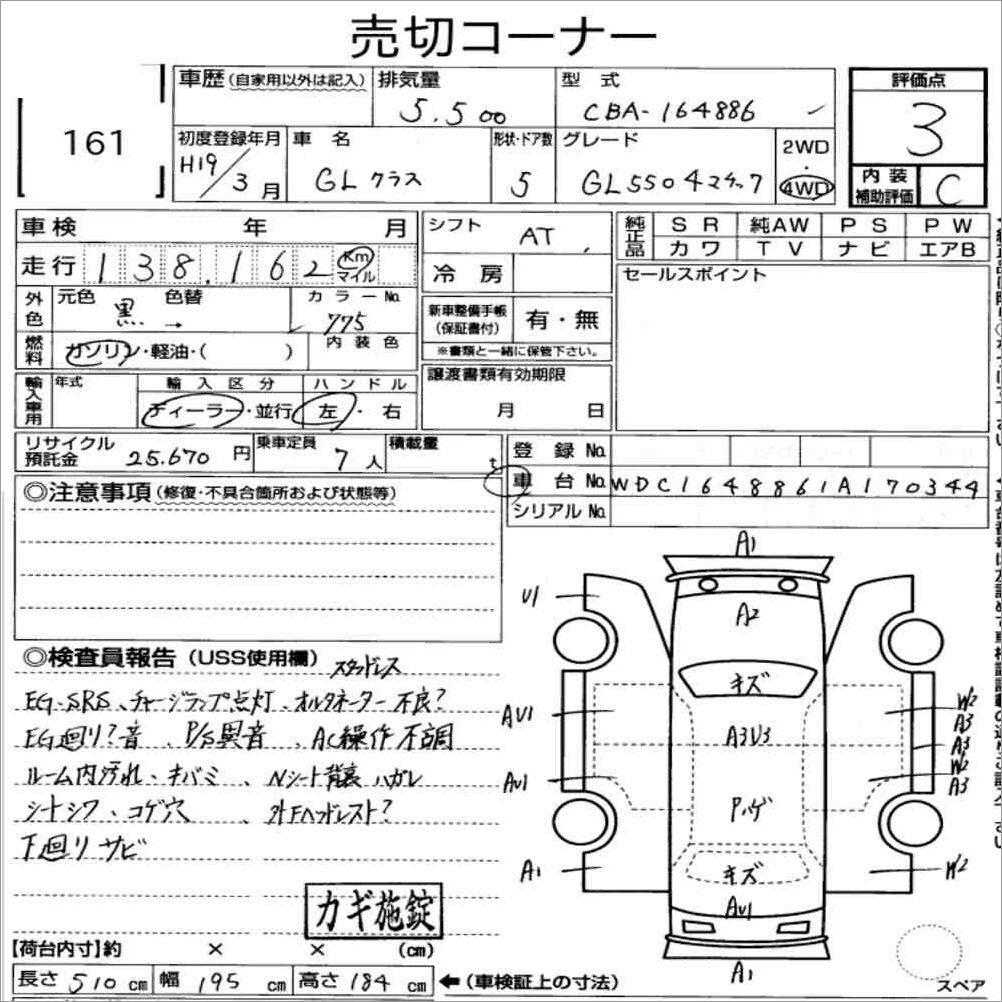 売切コーナー
161
車歴(自家用以外は記入) 排気量 5.500 型式 CBA-164886
評価点 3
初度登録年月 H19/3月 車名 GLクラス 形状・ドア数 5 グレード GL550 4マチック 2WD 4WD
内装補助評価 C
車検 年 月
走行 138.162 Km マイル
シフト AT
冷房
純正品 SR 純AW PS PW
カワ TV ナビ エアB
セールスポイント
外色 元色 黒 → 色替 カラーNo. 775
新車整備手帳(保証書付) 有・無
※書類と一緒に保管下さい。
燃料 ガソリン・軽油・( ) 内装色
譲渡書類有効期限 月 日
輸入車用 年式 輸入区分 ディーラー・並行 ハンドル 左・右
リサイクル預託金 25.670円 乗車定員 7人 積載量 t
登録No.
車台No. WDC1648861A170344
シリアルNo.
◎注意事項(修復・不具合箇所および状態等)
◎検査員報告(USS使用欄) スタッドレス
EG・SRS、チャージランプ点灯、オルタネーター不良?
EG廻り?音、P/S異音、AC操作不調
ルーム内汚れ、キバミ、Nシート背裏ハガレ
シートシワ、コゲ穴、外Fヘッドレスト?
下廻りサビ
カギ施錠
【荷台内寸】約 × × (cm)
長さ 510cm 幅 195cm 高さ 184cm ←(車検証上の寸法)
A1
U1
A2
キズ
AU1
A3U3
W2
A3
A3
W2
A3
AU1
Pハゲ
A1
キズ
W2
AU1
A1
スペア